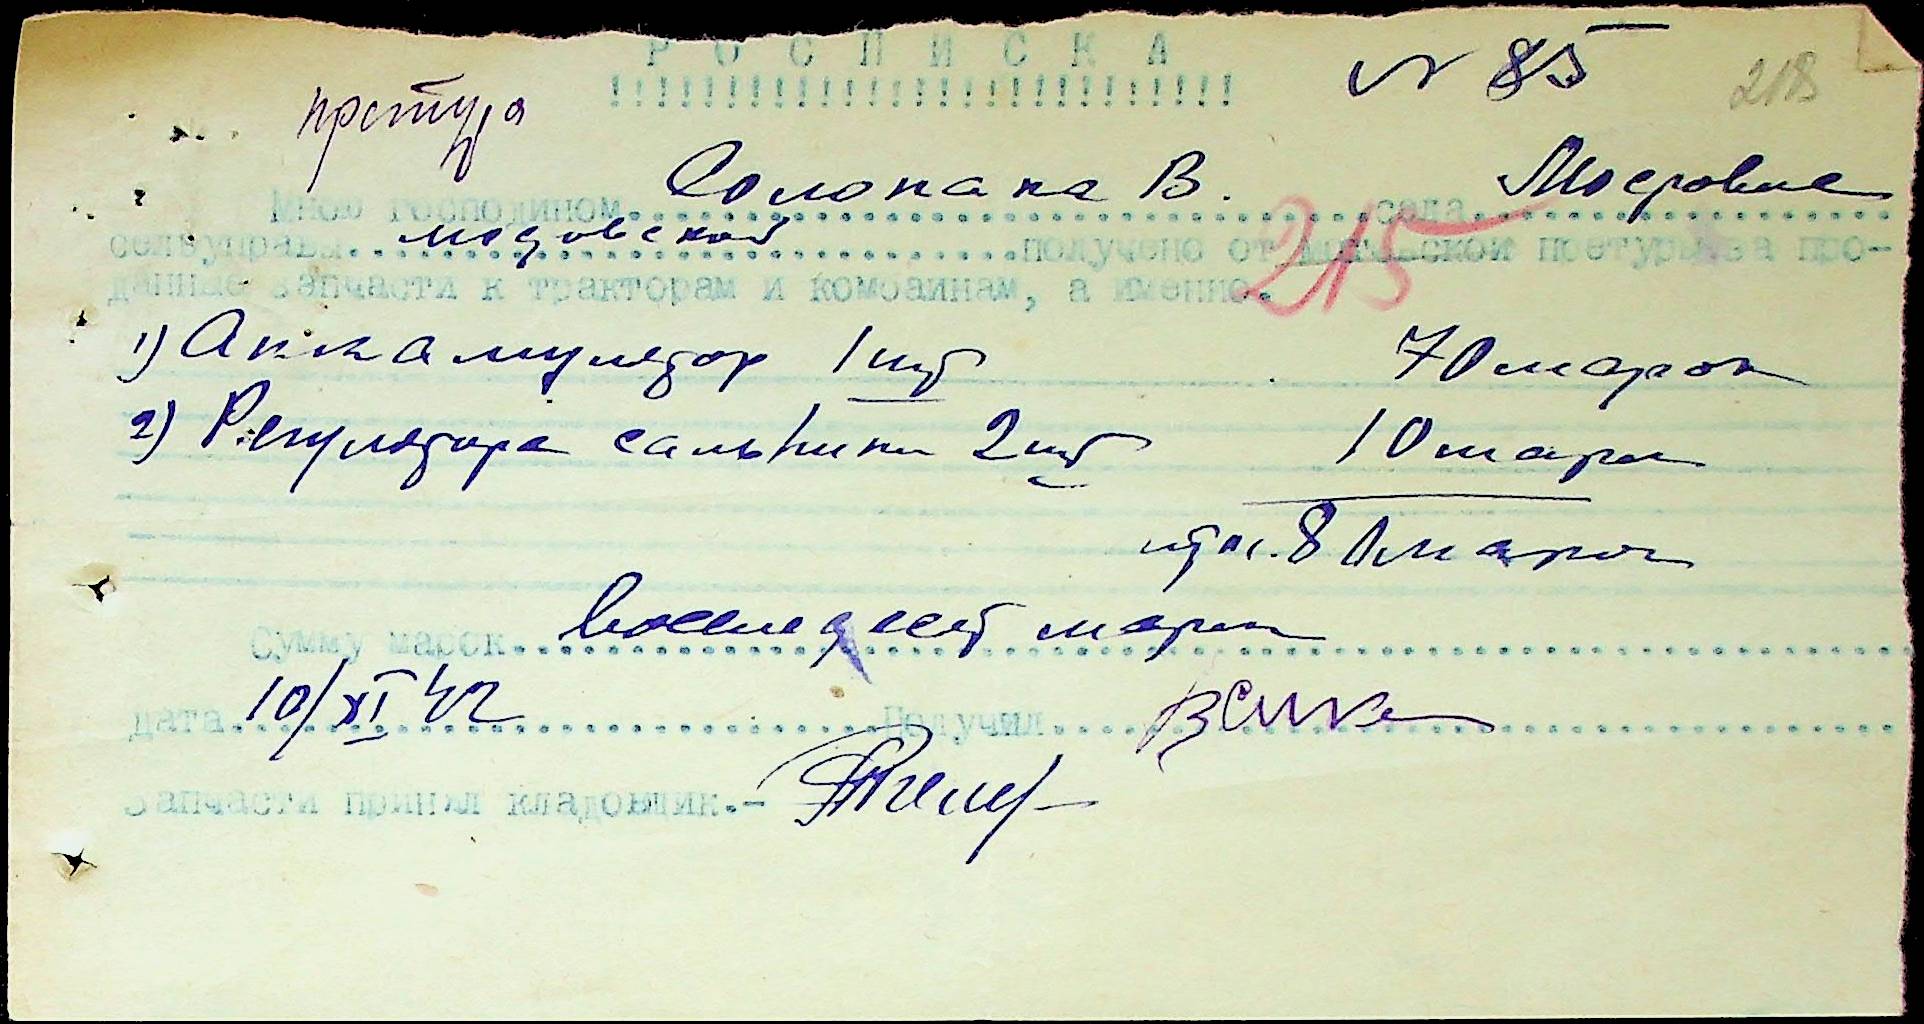 РОСПИСКА
!!!!!!!!!!!!!!!!!!!!!!!!!!!!
N 85
218
Мною господином Солопана В. села
сельуправы получено от МТ ской претуры за про-
данные запчасти к тракторам и комбаинам, а именно.
215
1) Аккамулятор 1 шт 70 марок
2) Регулятора сальники 2 шт 10 марок
итог. 80 марок
Сумму марок восемдесят марок
дата 10/XI 42 Получил
Запчасти принял кладовщик.-